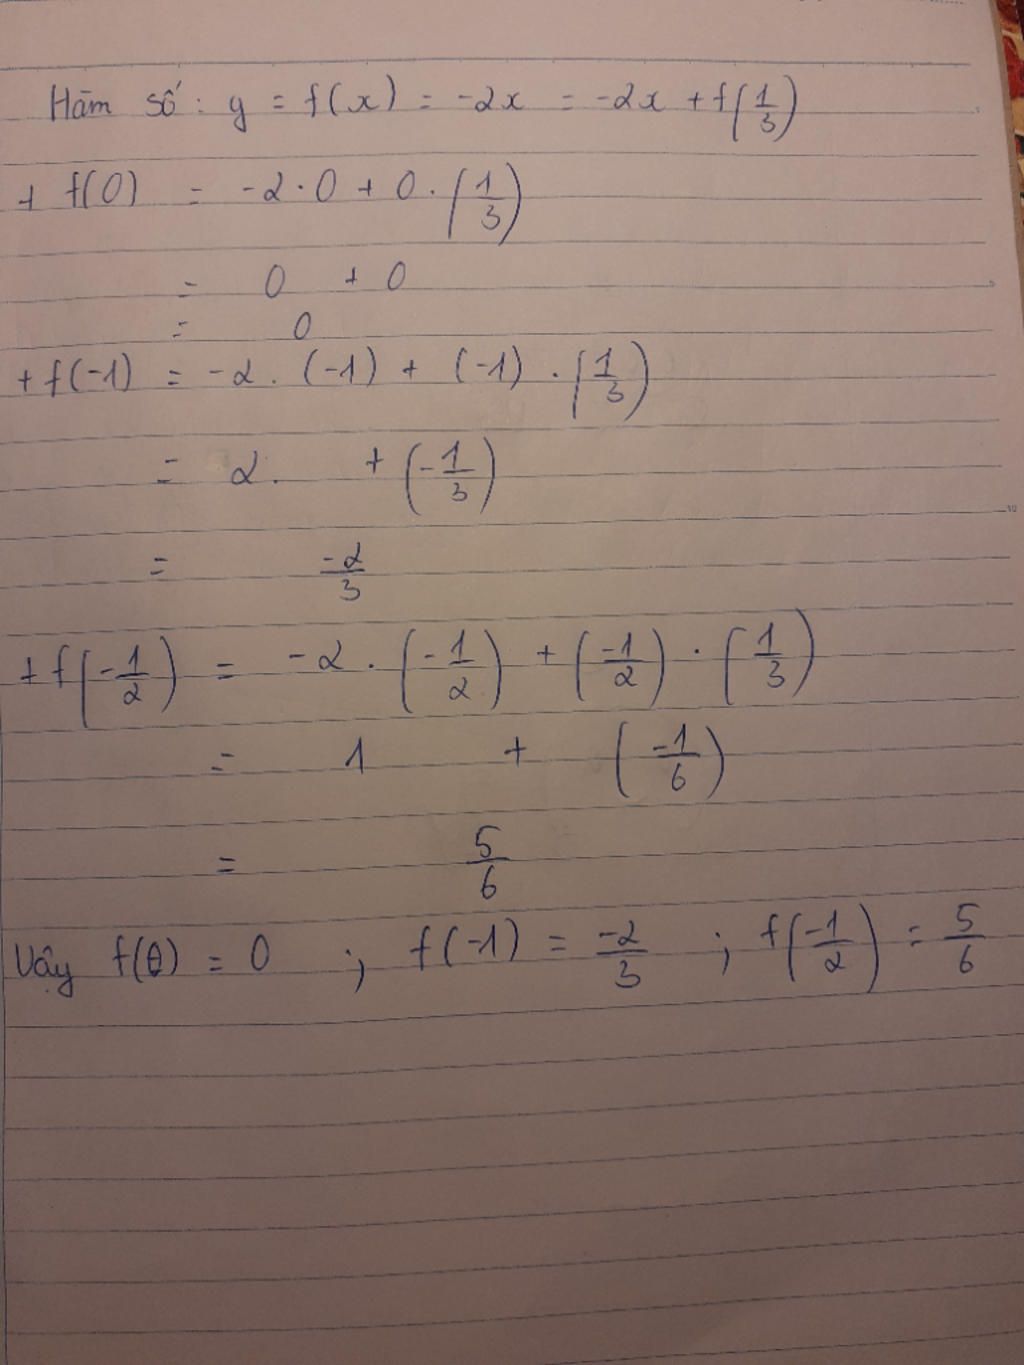 Hàm số: y = f(x) = -2x = -2x + f(1/3)
+ f(0) = -2·0 + 0·(1/3)
= 0 + 0
= 0
+ f(-1) = -2. (-1) + (-1) · (1/3)
= 2. + (-1/3)
= -2/3
+ f(-1/2) = -2 · (-1/2) + (-1/2) · (1/3)
= 1 + (-1/6)
= 5/6
Vậy f(0) = 0 ; f(-1) = -2/3 ; f(-1/2) = 5/6